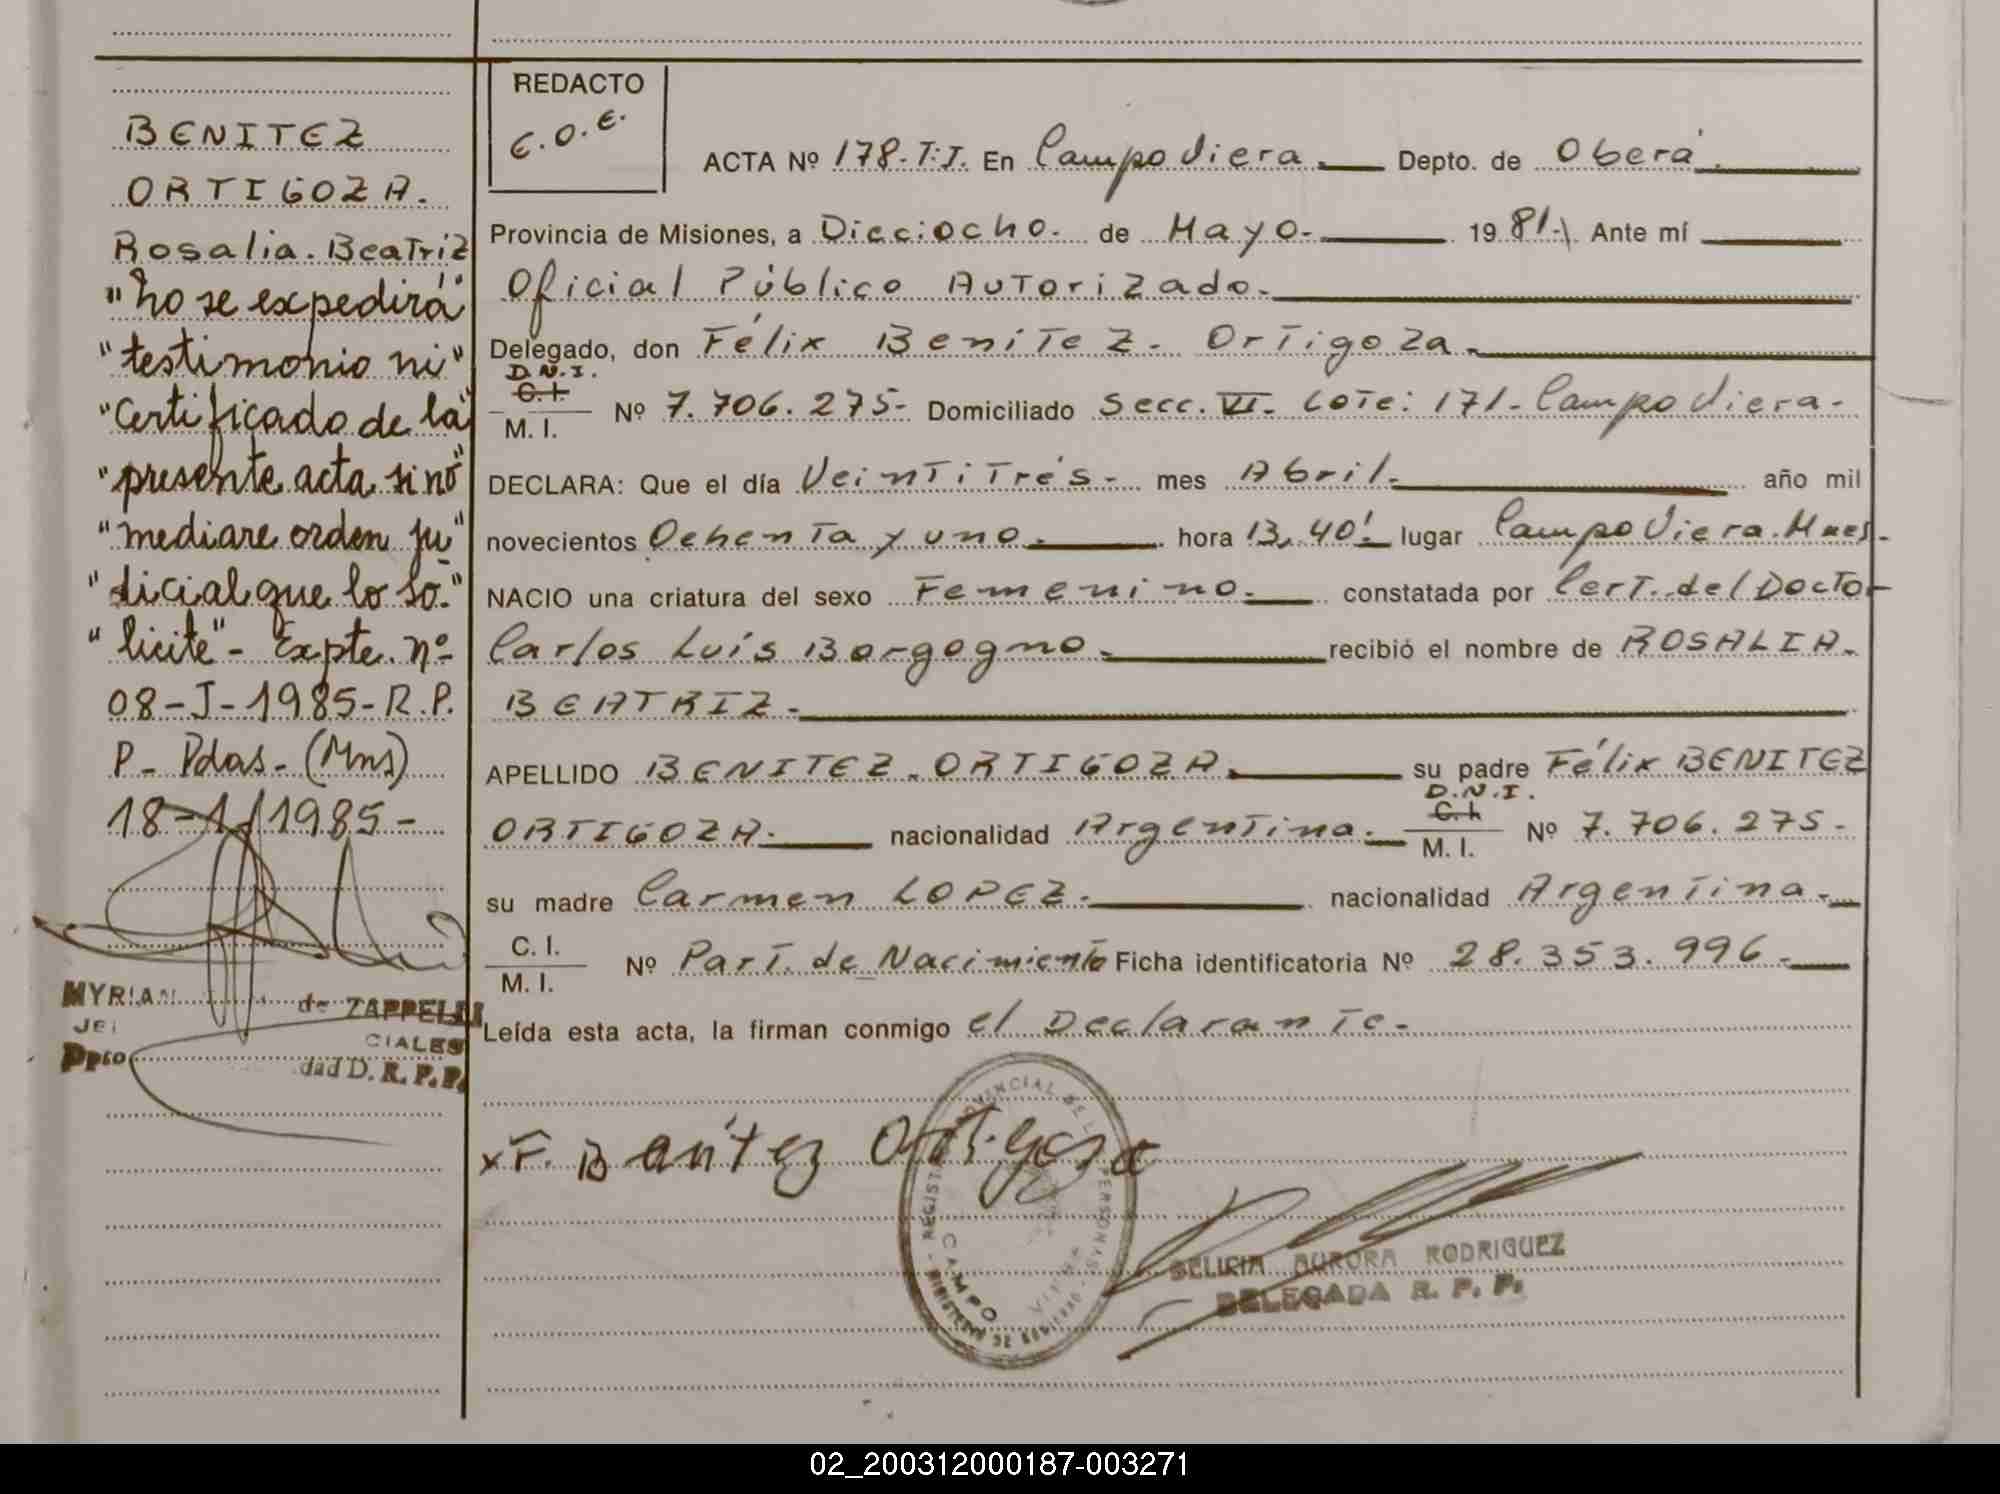 BENITEZ
ORTIGOZA.
Rosalia. Beatriz
"no se expedirá"
"testimonio ni"
"Certificado de la"
"presente acta si no"
"mediare orden ju"
"dicial que lo so-"
"licite" - Expte. nº-
08-J-1985-R.P.
P- Pdas- (Mns)
18-1-1985-
MYRIAN de ZAPPELLI
JE
CIALES
Dpto
dad D. R. P. P.
REDACTO
E.O.E.
ACTA Nº 178.T:I. En Campo Viera. Depto. de Oberá.
Provincia de Misiones, a Dieciocho. de Mayo. 1981.- Ante mí
Oficial Público Autorizado.
Delegado, don Félix Benitez. Ortigoza.
D.N.I.
C. I.
M. I.
Nº 7.706.275- Domiciliado Secc. VI. Lote: 171- Campo Viera.
DECLARA: Que el día Veintitrés- mes Abril. año mil
novecientos Ochenta y uno. hora 13,40'. lugar Campo Viera. Mnes.
NACIO una criatura del sexo Femenino. constatada por Cert. del Doctor
Carlos Luís Borgogno. recibió el nombre de ROSALIA.
BEATRIZ.
APELLIDO BENITEZ. ORTIGOZA. su padre Félix BENITEZ
D.N.I.
ORTIGOZA. nacionalidad Argentina. C. I. M. I. Nº 7.706.275-
su madre Carmen LOPEZ. nacionalidad Argentina.
C. I.
M. I.
Nº Part. de Nacimiento Ficha identificatoria Nº 28.353.996.
Leída esta acta, la firman conmigo el Declarante.
x F. Banítez Ortigoza
REGISTRO PROVINCIAL DE LAS PERSONAS - MINISTERIO DE GOBIERNO -
CAMPO VIERA
SELICIA AURORA RODRIGUEZ
DELEGADA R. P. P.
02_200312000187-003271